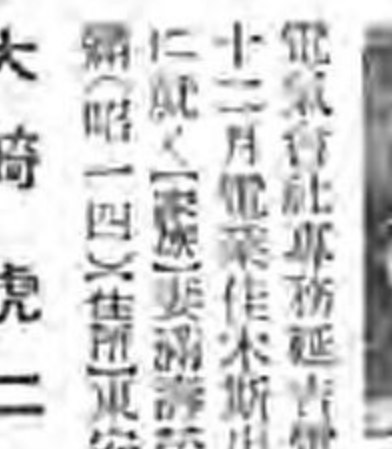 電氣會社專務延吉電
十二月電業佳木斯出
に就く【家族】妻満壽
(昭一四)【住所】東安
大﨑虎二